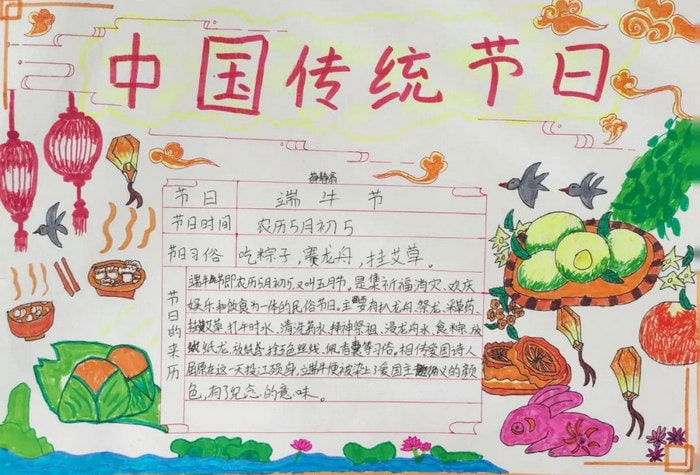 中国传统节日
节日 端牛节
节日时间 农历5月初5
节日习俗 吃粽子,赛龙舟,挂艾草。
节日的来历
端牛节即农历5月初5,又叫五月节,是集祈福消灾、欢庆
娱乐和饮食为一体的民俗节日。主要有扒龙舟、祭龙、采草药、
打午时水、洗草药水、拜神祭祖、浸龙舟水、食粽、放
纸龙、放纸鸢、拴五色丝线、佩香囊等习俗。相传爱国诗人
屈原在这一天投江殉身,端午便被染上了爱国主义的颜
色,有了纪念的意味。